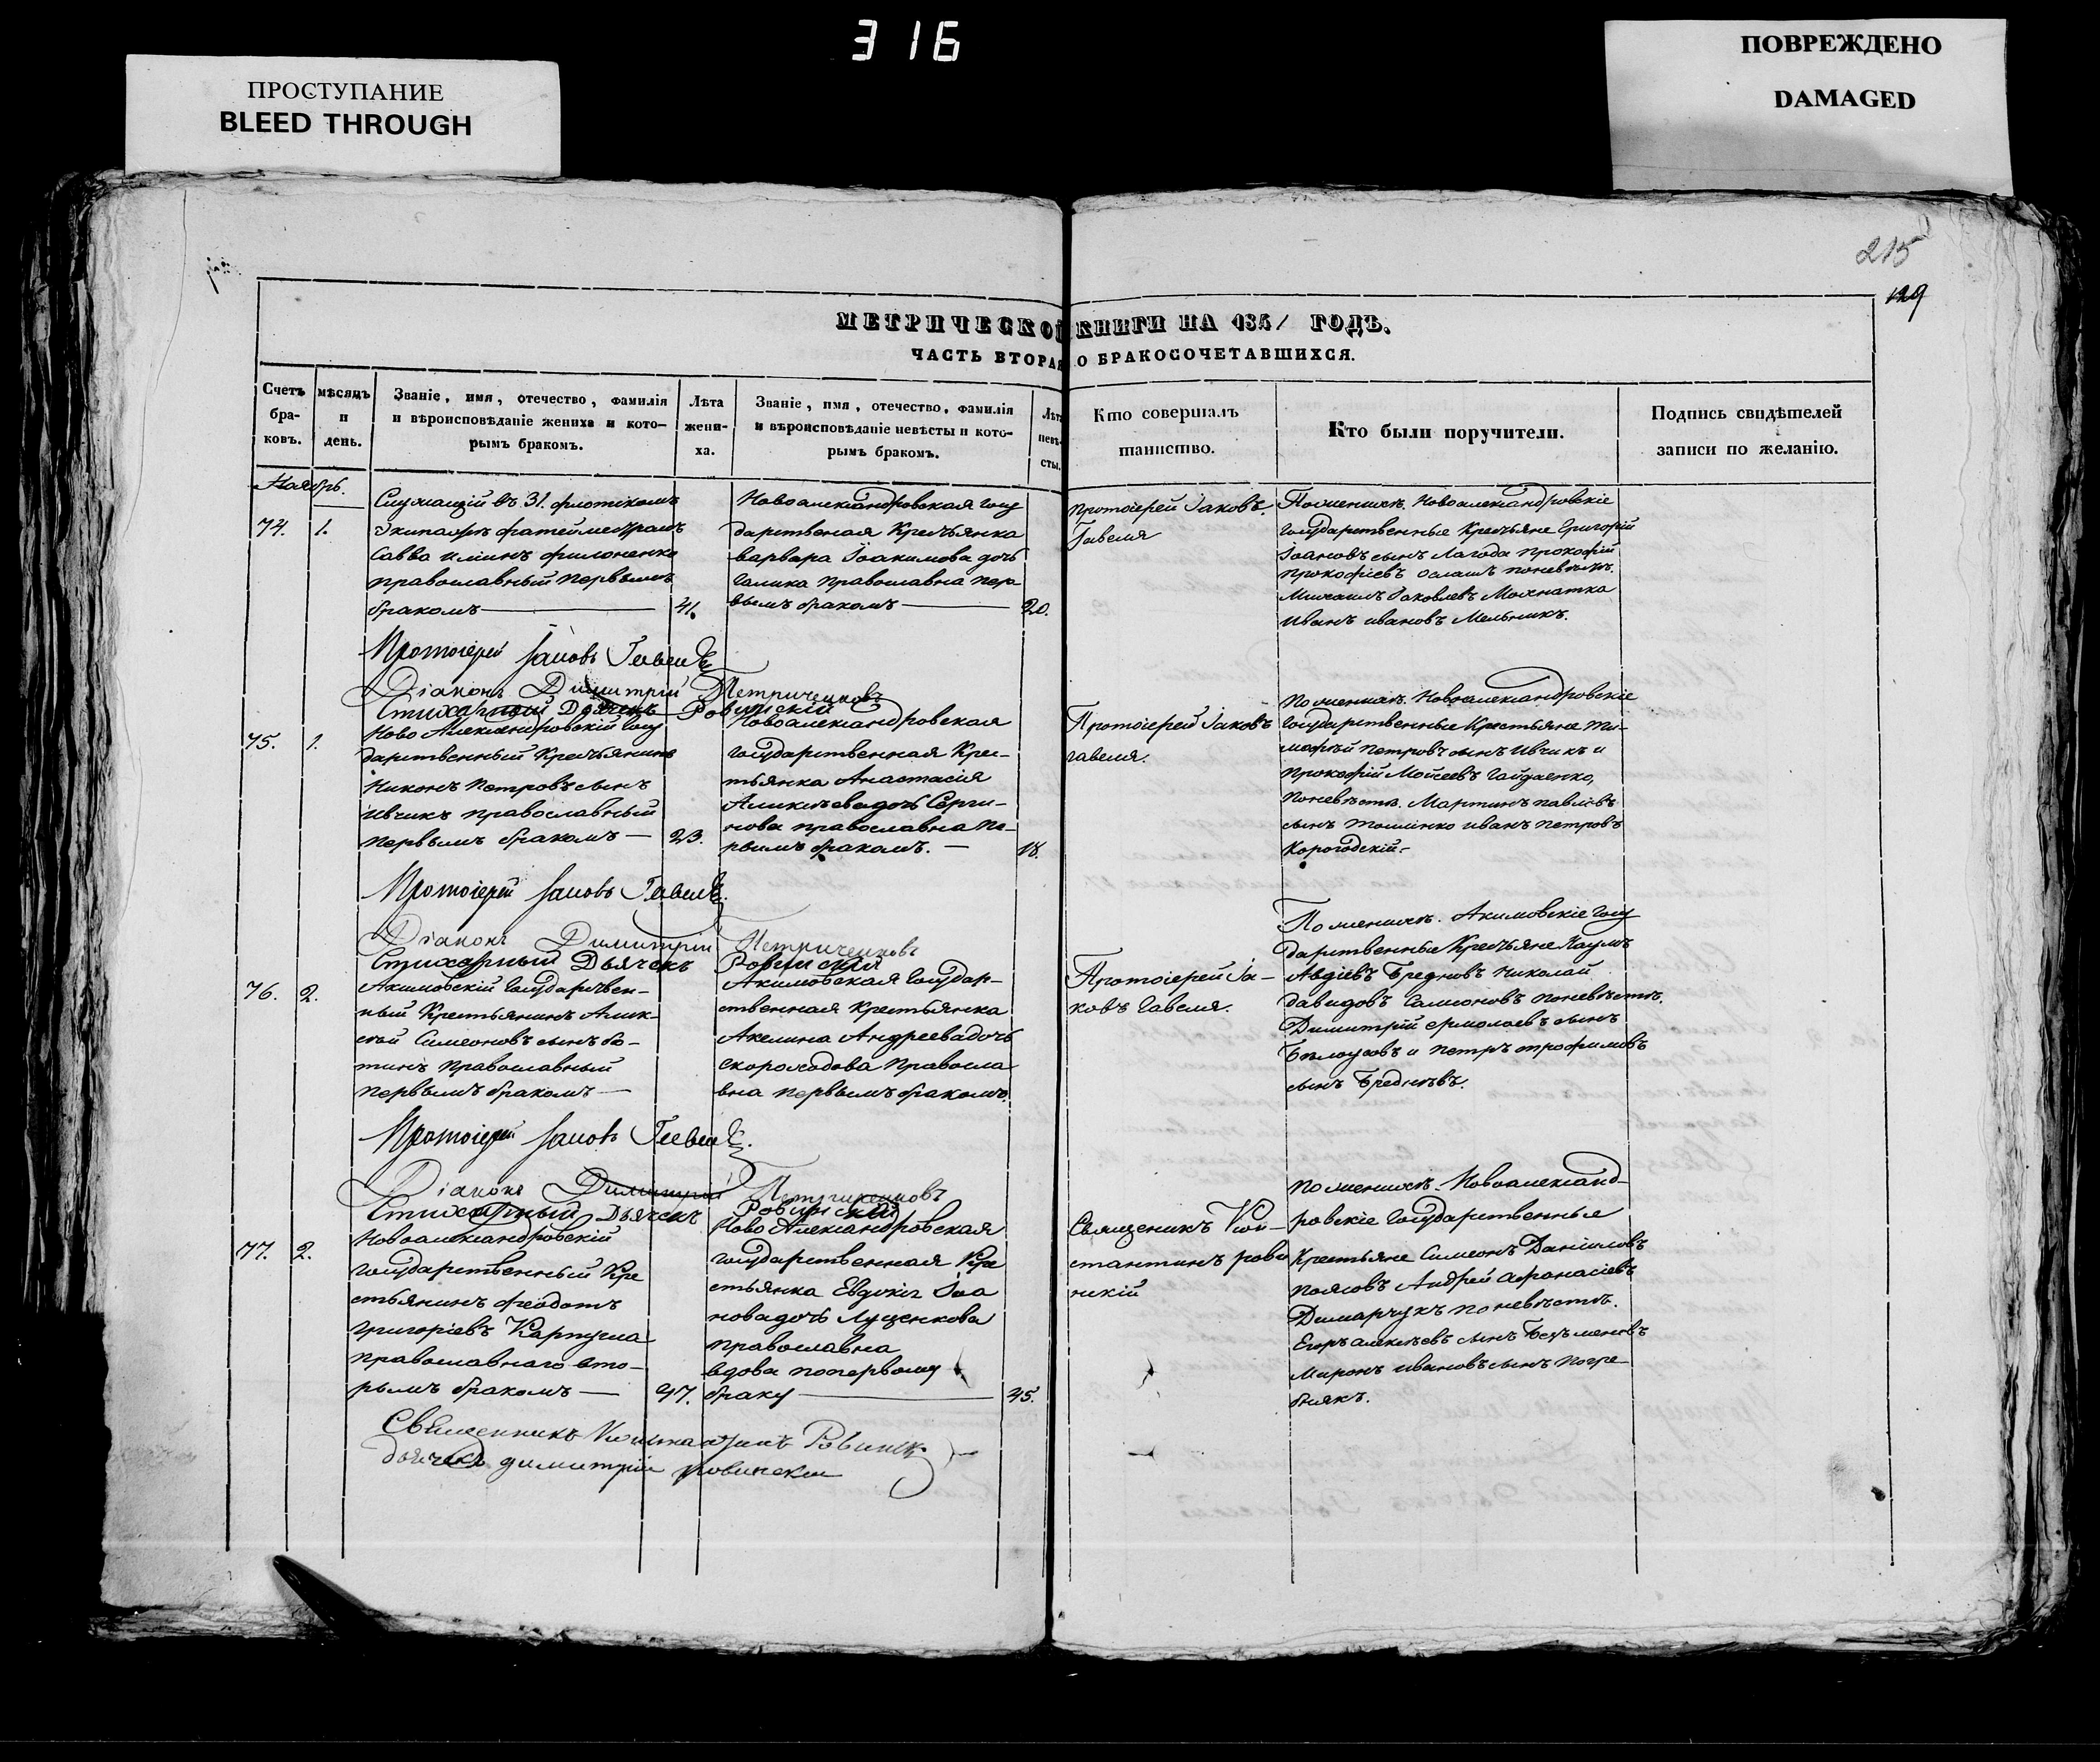 316
ПРОСТУПАНИЕ
BLEED THROUGH
ПОВРЕЖДЕНО
DAMAGED
215
129
МЕТРИЧЕСКОЙ КНИГИ НА 1851 ГОДЪ.
ЧАСТЬ ВТОРАЯ О БРАКОСОЧЕТАВШИХСЯ.
Счетъ бра-ковъ.
мѣсяцъ и день.
Званіе, имя, отечество, фамилія
и вѣроисповѣданіе жениха и кото-
рымъ бракомъ.
Лѣта жени-ха.
Званіе, имя, отечество, фамилія
и вѣроисповѣданіе невѣсты и кото-
рымъ бракомъ.
Лѣта невѣ-сты.
Кто совершалъ
таинство.
Кто были поручители.
Подпись свидѣтелей
записи по желанію.
Ноябрь.
74. 1.
Служащій въ 31. флотскомъ
Экипажѣ
Савва Илiинъ филоненко
православный первымъ
бракомъ — 41.
Новоалександровская госу
дарственая Крестьянка
варвара Іоакимова дочь
Галика православна пер
вымъ бракомъ — 20.
протоіерей Іаковъ
Гавеля
По женихѣ. Новоалександровскіе
государственные Крестьяне Григорій
Іоановъ сынъ Лагода прокофій
прокофіевъ поневѣстѣ.
Михаилъ Іаковлевъ Мохнатка
Иванъ ивановъ Мельникъ.
Протоіерей Іаковъ Гавеля
Діаконъ Димитрій Петриченковъ
Стихарный Дьячекъ Ровинский
75. 1.
Ново Александровскій госу
дарственный Крестьянинъ
Никонъ Петровъ сынъ
Ивчикъ православный
первымъ бракомъ — 23.
Новоалександровская
государственная Крес-
тьянка Анастасія
Алексѣева дочь Серги-
нова православна пе-
рвымъ бракомъ. — 18.
Протоіерей Іаковъ
гавеля.
По женихѣ. Новоалександровскіе
государственные Крестьяне Ти-
мофѣй петровъ сынъ Ивчикъ и
прокофій Моисеевъ Гайдаенко,
Поневѣстѣ. Мартинъ павловъ
сынъ иванъ петровъ
Корогодскій.
Протоіерей Іаковъ Гавеля.
Діаконъ Димитрій Петриченковъ
Стихарный Дьячекъ Ровинский
76. 2.
Акимовскій государствен-
ный Крестьянинъ Алек-
сѣй Симеоновъ сынъ Ба-
тинъ православный
первымъ бракомъ —
Акимовская государ-
ственная Крестьянка
Акелина Андреева дочь
скороходова Правосла
вна первымъ бракомъ.
Протоіерей Іа-
ковъ Гавеля.
По женихѣ. Акимовскіе госу
дарственные Крестьяне Наумъ
Авдіевъ Бредневъ Николай
давидовъ Самсоновъ поневѣстѣ.
Димитрій ермолаевъ сынъ
Бѣлоусовъ и петръ трофимовъ
сынъ Бредневъ.
Протоіерей Іаковъ Гавеля.
Діаконъ Димитрій Петриченковъ
Стихарный Дьячекъ Ровинский
77. 2.
Новоалександровскій
государственный Кре
стьянинъ Феодотъ
Григоріевъ Карпуша
православнаго вто-
рымъ бракомъ — 47.
Ново Александровская
государственная Кре
стьянка Евдокія Іоа
нова дочь Луценкова
православна
вдова попервому
браку — 45.
Священикъ Кон-
стантинъ рови
нскій
По женихѣ. Новоалександ-
ровскіе государственные
Крестьяне Симеонъ Даніиловъ
поясовъ Андрей афанасіевъ
Димарчукъ поневѣстѣ.
Егоръ алексѣевъ сынъ Безъменовъ
Миронъ ивановъ сынъ погре-
бнякъ.
Священникъ Константинъ Ровинск
дьячекъ димитрій ровински